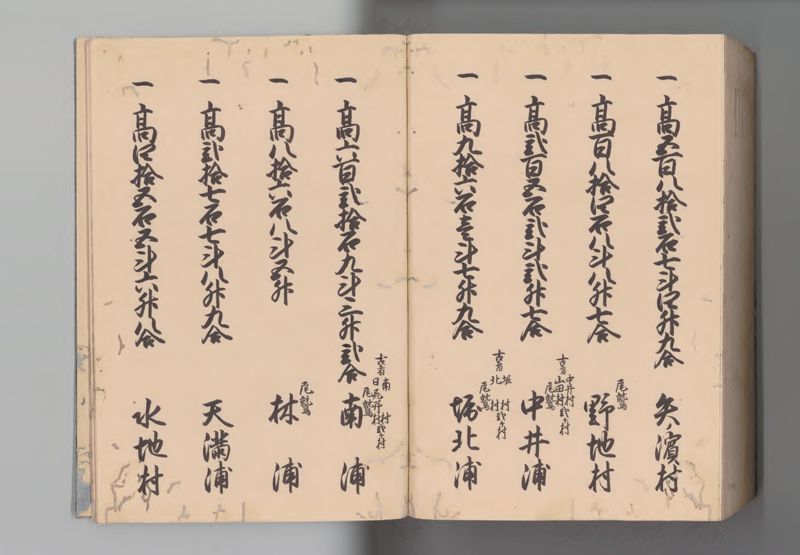 一高五百八拾弐石七斗四升九合 矢ノ濱村
一高百八拾四石八斗八升七合 尾鷲 野地村
一高弐百五石弐斗弐升七合 古者 中井村 山田村 弐ヶ村 尾鷲 中井浦
一高九拾六石壱斗七升九合 古者 堀村 北村 弐ヶ村 尾鷲 堀北浦
一高六百弐拾石九斗三升弐合 古者 南村 日尻野村 弐ヶ村 尾鷲 南浦
一高八拾六石八斗五升 尾鷲 林浦
一高弐拾七石七斗八升九合 天満浦
一高四拾五石五斗六升八合 水地村